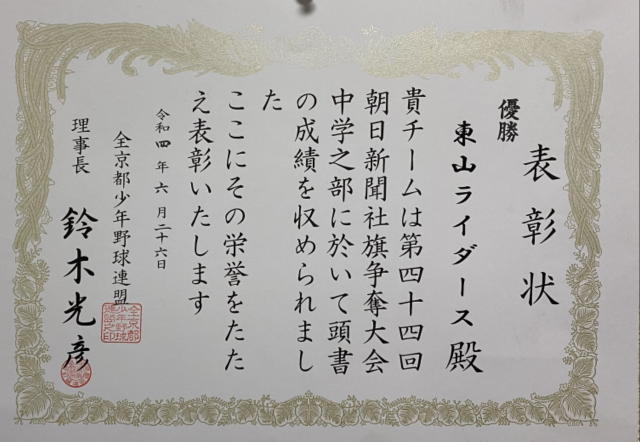 表彰状
優勝
東山ライダース殿
貴チームは第四十四回
朝日新聞社旗争奪大会
中学之部に於いて頭書
の成績を収められまし
た
ここにその栄誉をたた
え表彰いたします
令和四年六月二十六日
全京都少年野球連盟
理事長 鈴木光彦